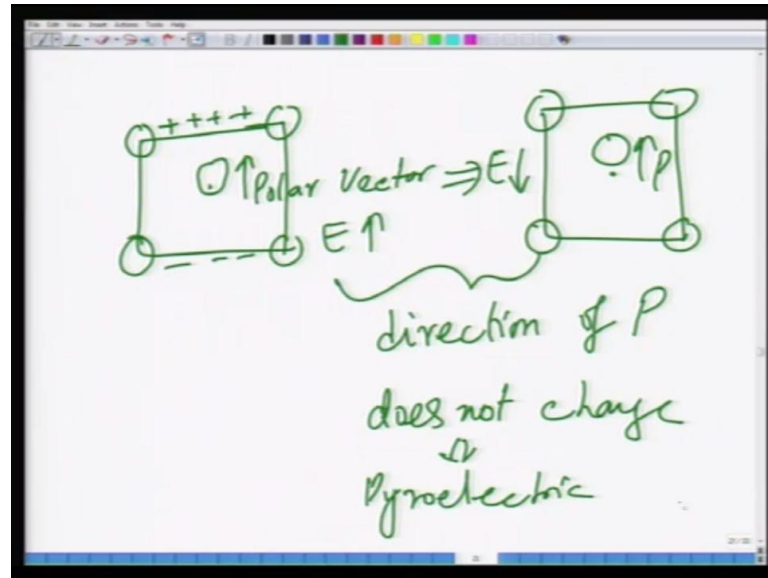 File Edit View Insert Actions Tools Help
B I
+ + + +
Polar Vector ⇒ E↓
↑P
- - - -
E ↑
direction of P
does not change
⇓
Pyroelectric